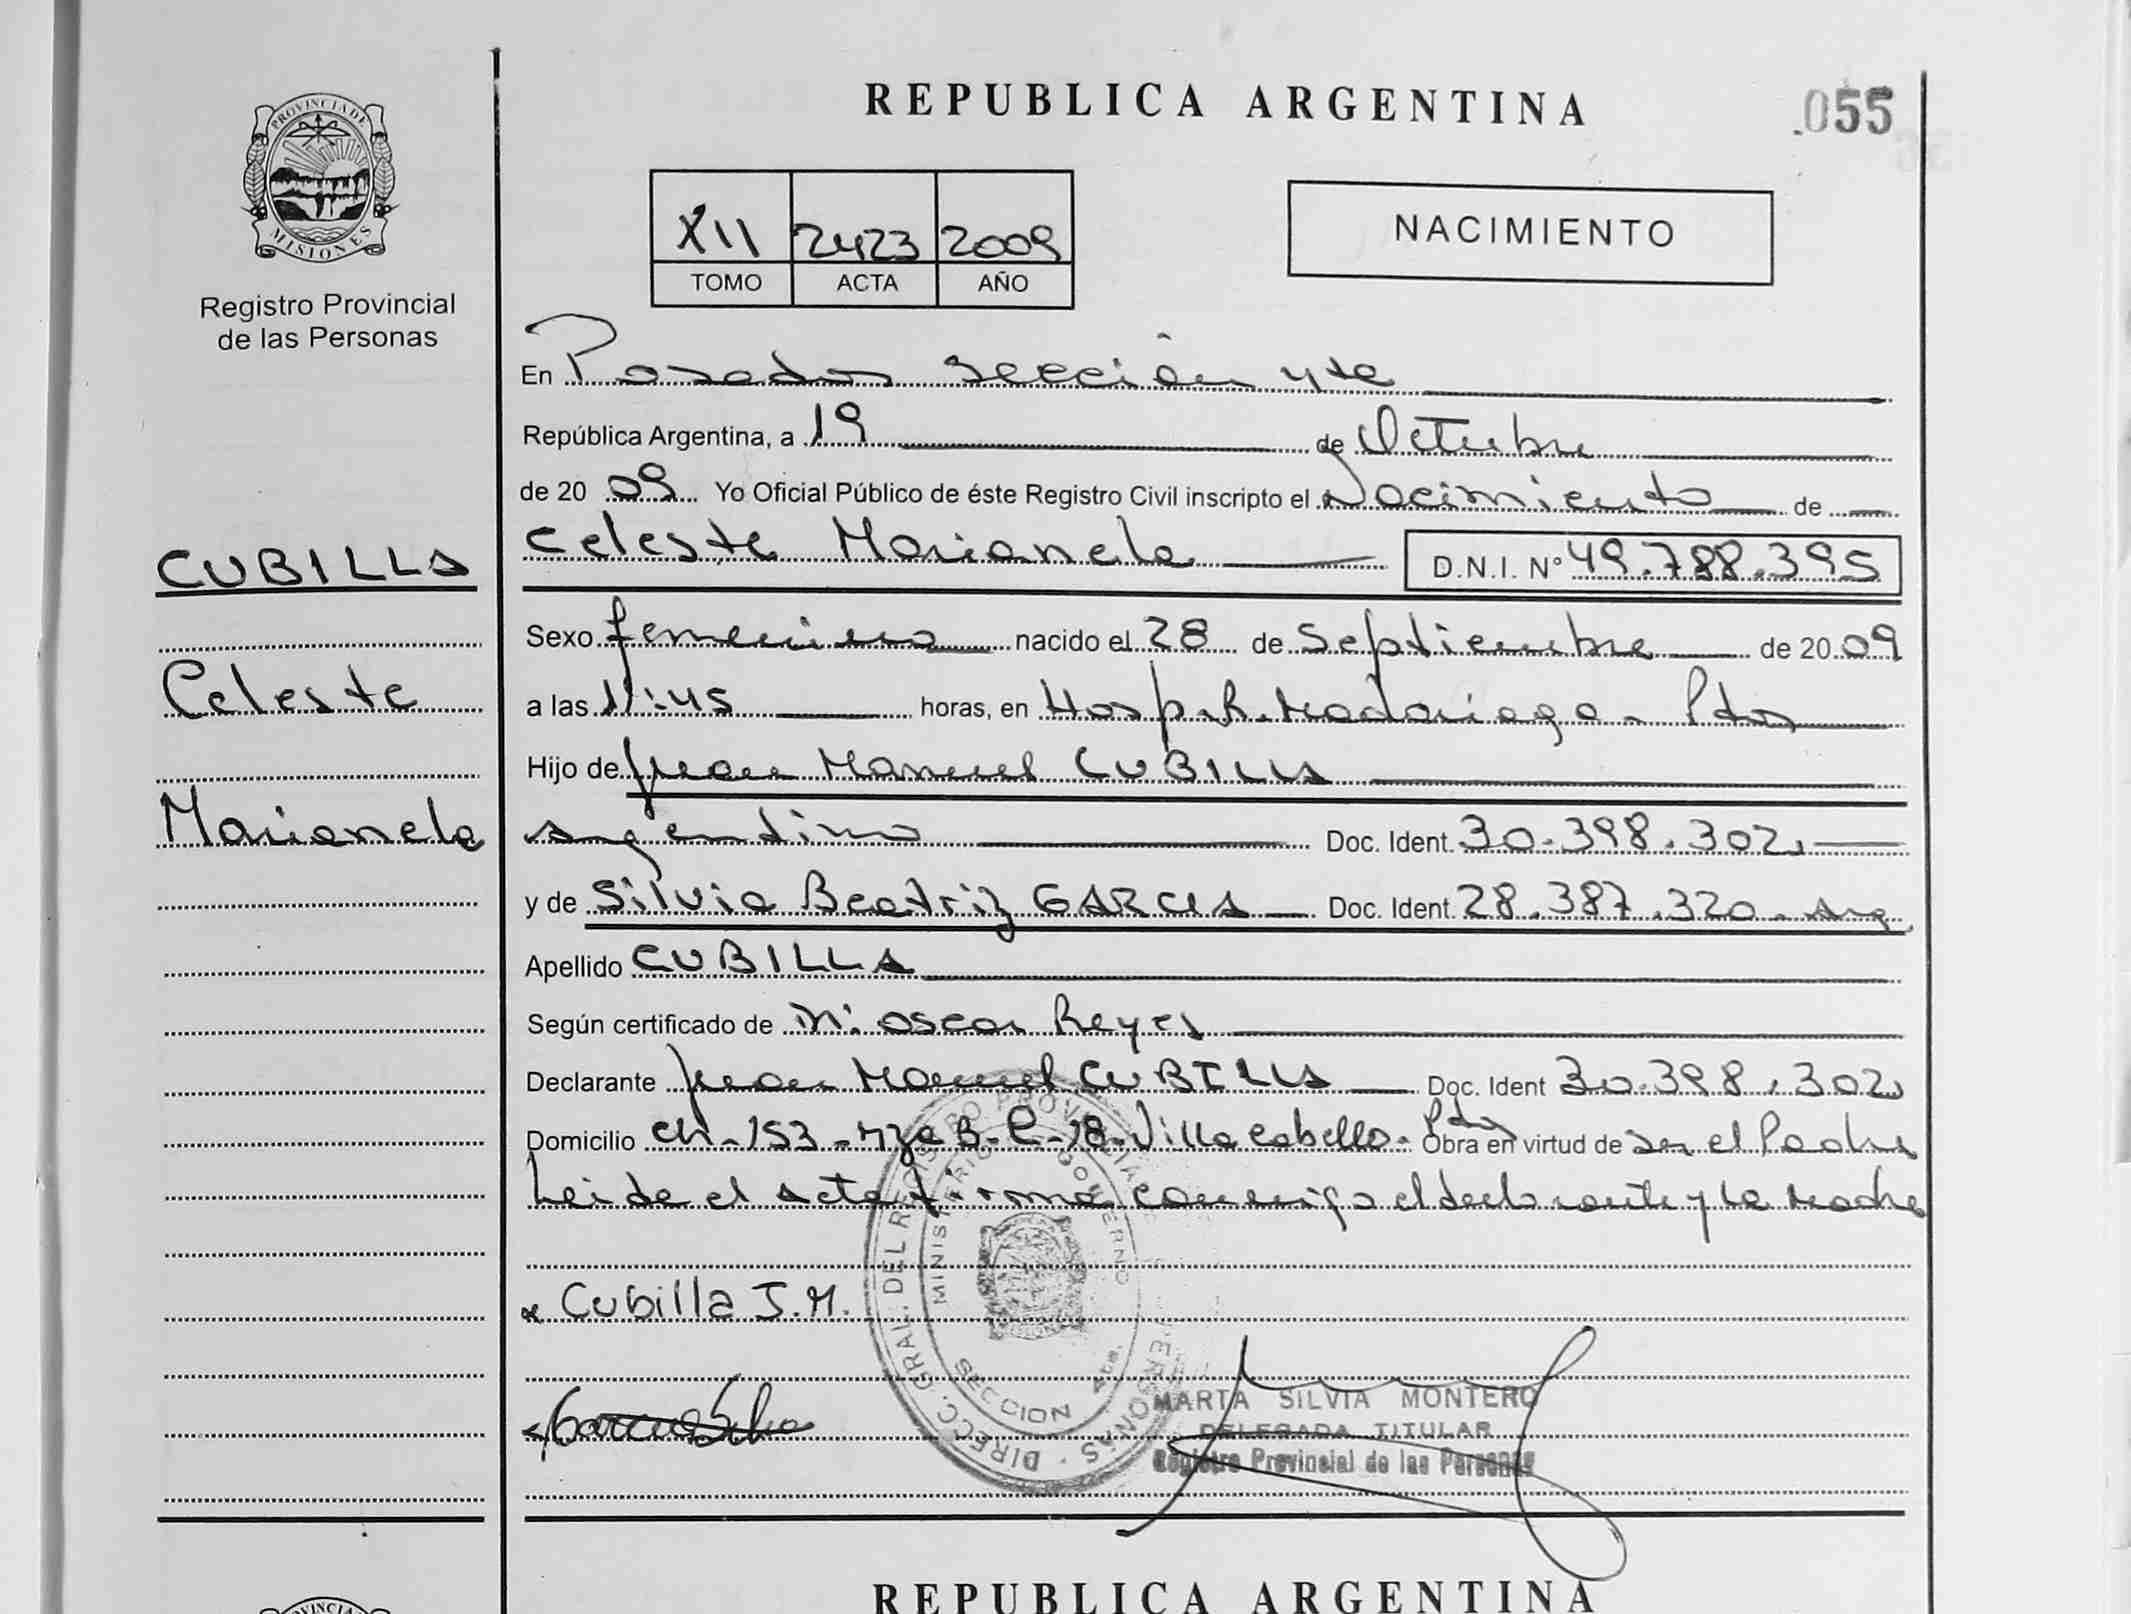 REPUBLICA ARGENTINA
.055
PROVINCIA DE
MISIONES
Registro Provincial
de las Personas
XII 2423 2009
TOMO ACTA AÑO
NACIMIENTO
En Posadas Sección 4ta
República Argentina, a 19 de Octubre
de 20 09 Yo Oficial Público de éste Registro Civil inscripto el Nacimiento de
Celeste Marianela D.N.I. Nº 49.788.395
CUBILLA
Celeste
Marianela
Sexo femenino nacido el 28 de Septiembre de 20 09
a las 11:45 horas, en Hosp. R. Madariaga - Pdas
Hijo de Juan Manuel CUBILLA
argentino Doc. Ident. 30.398.302
y de Silvia Beatriz GARCIA Doc. Ident. 28.387.320 - arg
Apellido CUBILLA
Según certificado de Oscar Reyes
Declarante Juan Manuel CUBILLA Doc. Ident 30.398.302
Domicilio CH-153-Mza B-C-18-Villa Cabello- Pdas Obra en virtud de ser el Padre
Leida el acta firma conmigo el declarante y la madre
Cubilla J.M.
Garcia Silvia
DIRECC. GRAL. DEL REGISTRO PROVINCIAL PERSONAS
MINISTERIO GOBIERNO
SECCION 4ta.
MARTA SILVIA MONTERO
DELEGADA TITULAR
Registro Provincial de las Personas
REPUBLICA ARGENTINA